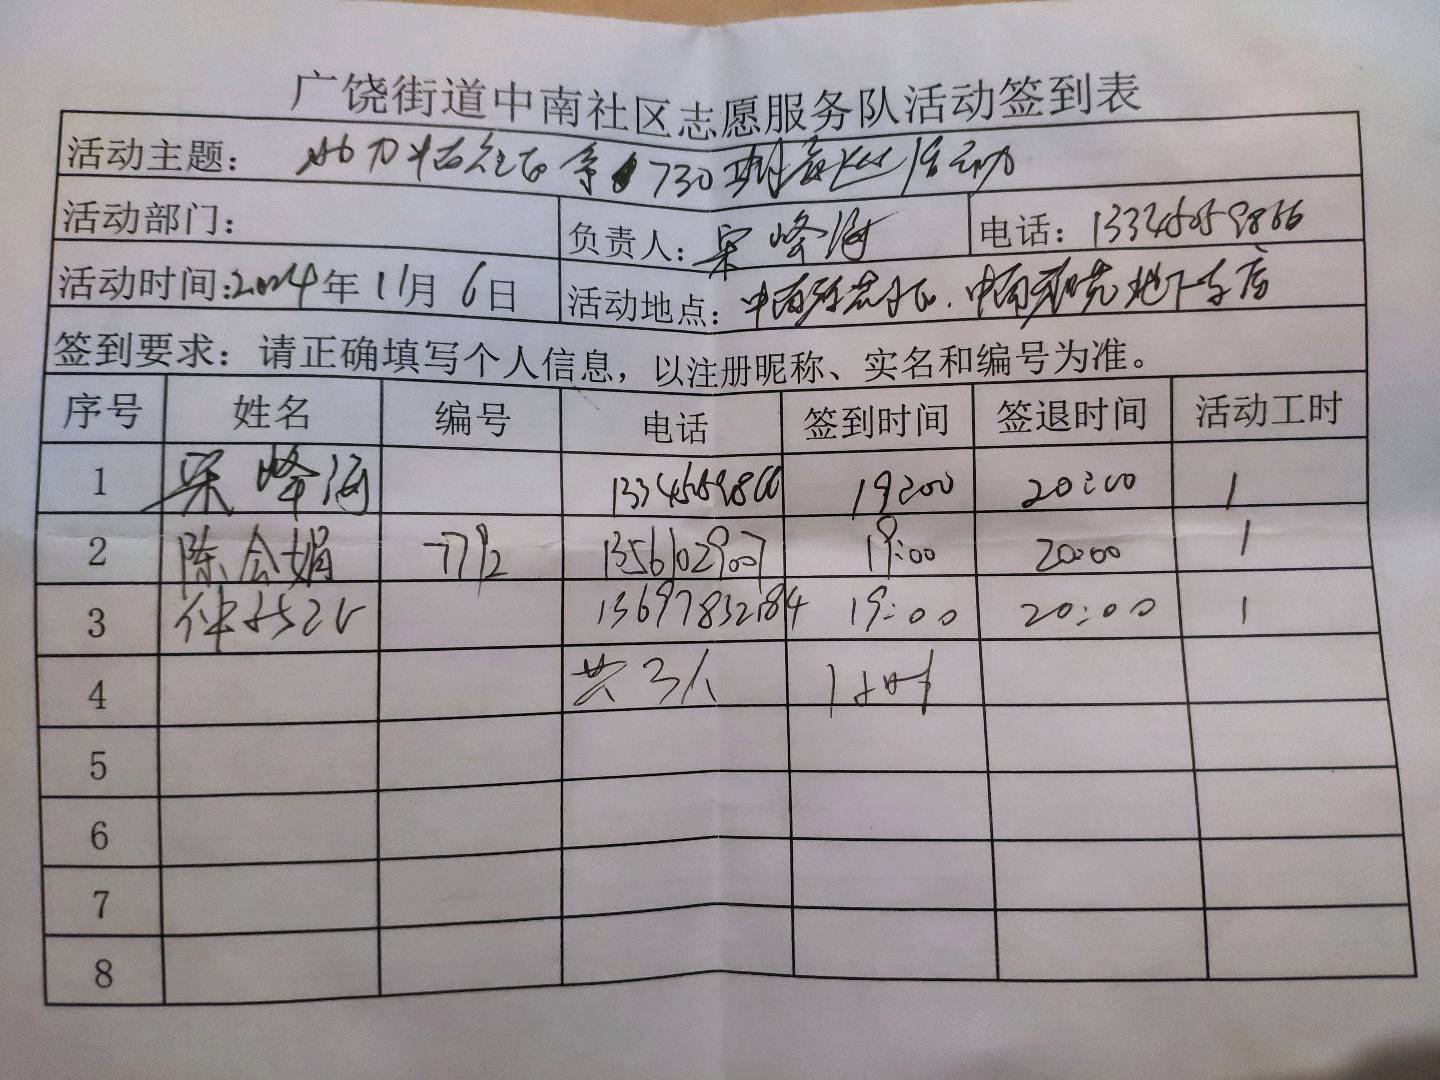 广饶街道中南社区志愿服务队活动签到表
活动主题： 730 活动
活动部门： 负责人：宋峰海 电话：13345059866
活动时间：2024年11月6日 活动地点：中南 中南 地下车库
签到要求：请正确填写个人信息，以注册昵称、实名和编号为准。
序号 姓名 编号 电话 签到时间 签退时间 活动工时
1 宋峰海 13345059866 19:00 20:00 1
2 陈会娟 7792 13561029007 19:00 20:00 1
3 仲 13697832184 19:00 20:00 1
4 共3人 1小时
5
6
7
8